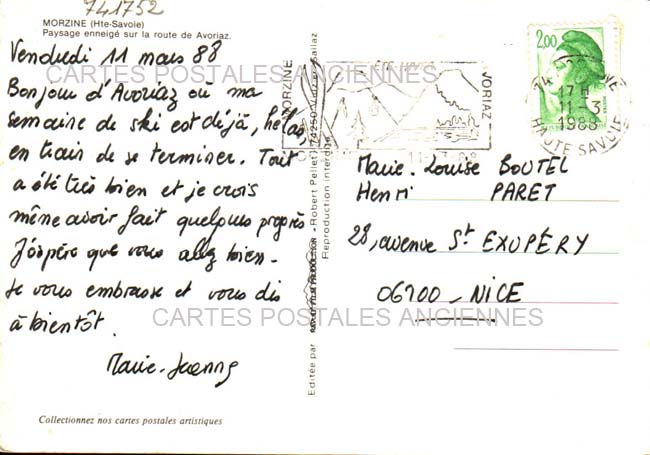 741752
MORZINE (Hte-Savoie)
Paysage enneigé sur la route de Avoriaz.
Vendredi 11 mars 88
Bonjour d'Avoriaz où ma
semaine de ski est déjà, hélas,
en train de se terminer. Tout
a été très bien et je crois
même avoir fait quelques progrès
J'espère que vous allez bien -
Je vous embrasse et vous dis
à bientôt.
Marie-Jeanne
Collectionnez nos cartes postales artistiques
Editée par
Robert Pellet - 74250 Viuz-en-Sallaz
Reproduction interdite
MORZINE
AVORIAZ
2,00
74 MORZINE
17 H
11-3
1988
HAUTE SAVOIE
Marie-Louise BOUTEL
Henri PARET
28, avenue St EXUPÉRY
06100 - NICE
CARTES POSTALES ANCIENNES
CARTES POSTALES ANCIENNES